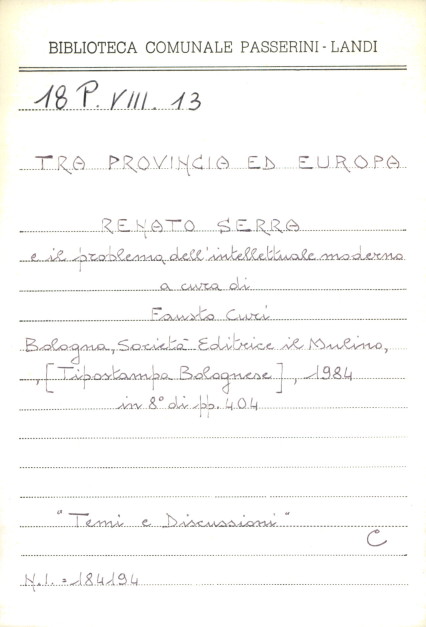 BIBLIOTECA COMUNALE PASSERINI - LANDI
18 P. VIII. 13
TRA PROVINCIA ED EUROPA
RENATO SERRA
e il problema dell'intellettuale moderno
a cura di
Fausto Curi
Bologna, Società Editrice il Mulino,
, [Tipostampa Bolognese], 1984
in 8° di pp. 404
"Temi e Discussioni"
C
N.I. = 184194